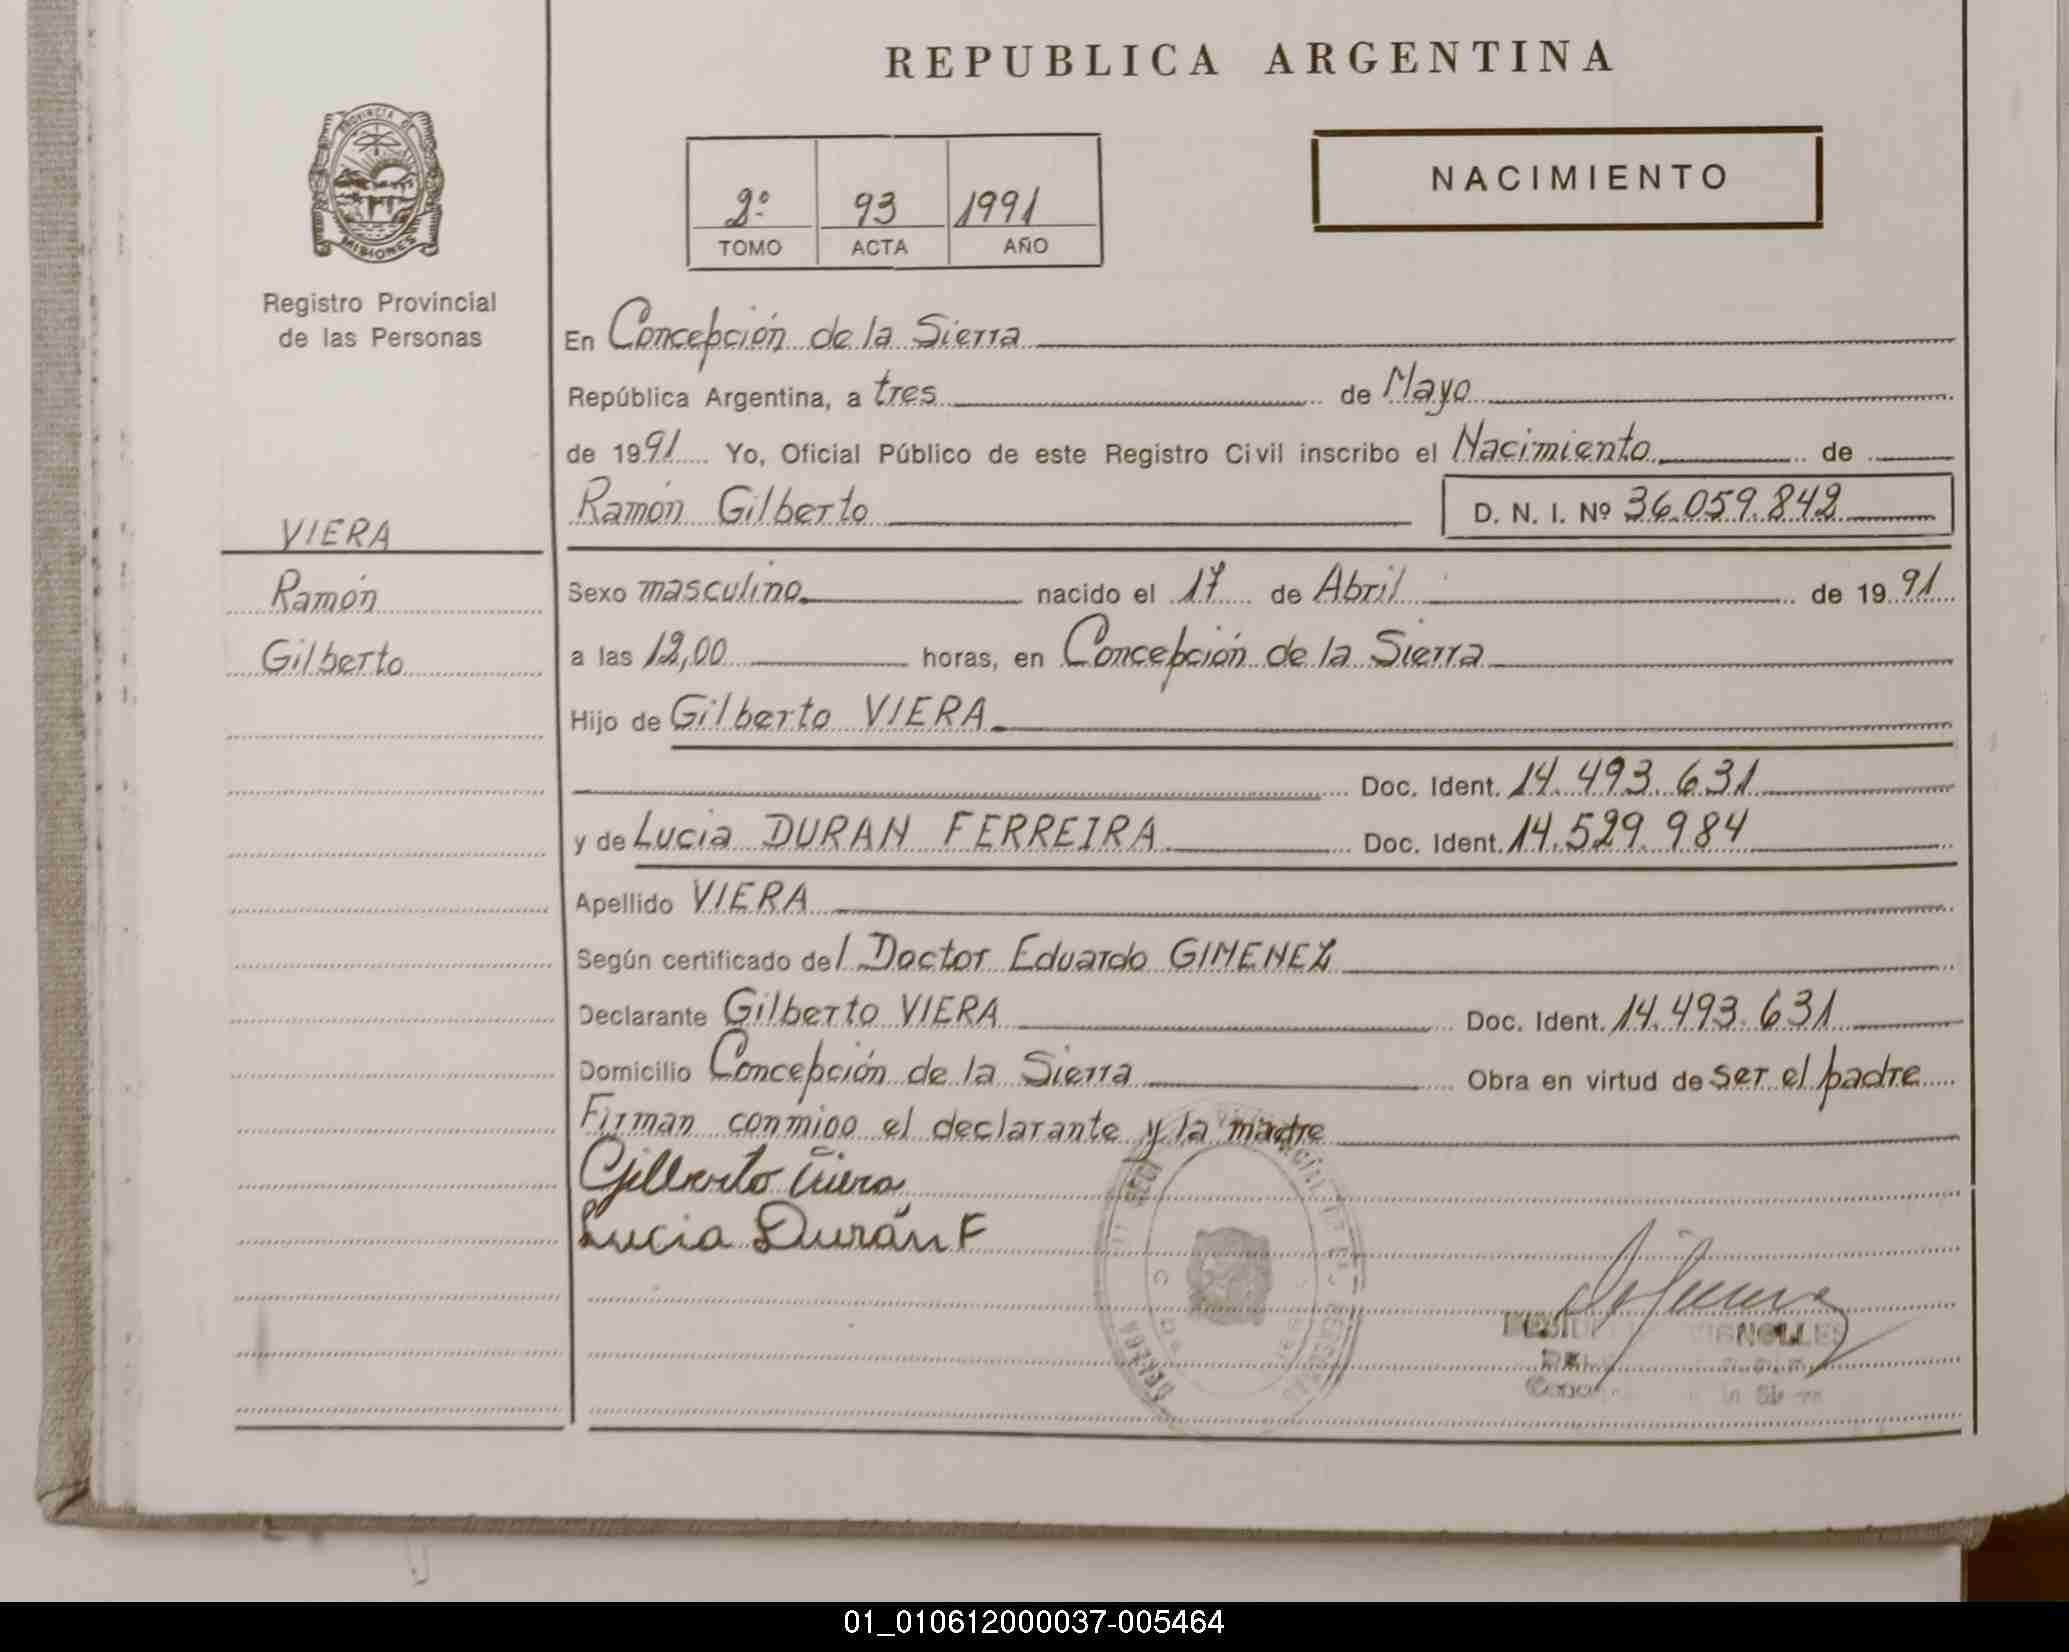 REPUBLICA ARGENTINA
PROVINCIA DE
MISIONES
Registro Provincial
de las Personas
NACIMIENTO
2º 93 1991
TOMO ACTA AÑO
En Concepción de la Sierra
República Argentina, a tres de Mayo
de 1991 Yo, Oficial Público de este Registro Civil inscribo el Nacimiento de
Ramón Gilberto D. N. I. Nº 36.059.842
VIERA
Ramón
Gilberto
Sexo masculino nacido el 17 de Abril de 1991
a las 12,00 horas, en Concepción de la Sierra
Hijo de Gilberto VIERA
Doc. Ident. 14.493.631
y de Lucia DURAN FERREIRA Doc. Ident. 14.529.984
Apellido VIERA
Según certificado del Doctor Eduardo GIMENEZ
Declarante Gilberto VIERA Doc. Ident. 14.493.631
Domicilio Concepción de la Sierra Obra en virtud de ser el padre
Firman conmigo el declarante y la madre
Gilberto Viera
Lucia Durán F
01_010612000037-005464